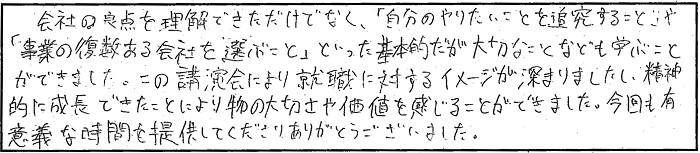 会社の良点を理解できただけでなく、「自分のやりたいことを追究すること」や
「事業の復数ある会社を選ぶこと」といった基本的だが大切なことなども学ぶこと
ができました。この講演会により就職に対するイメージが深まりましたし、精神
的に成長できたことにより物の大切さや価値を感じることができました。今回も有
意義な時間を提供してくださりありがとうございました。